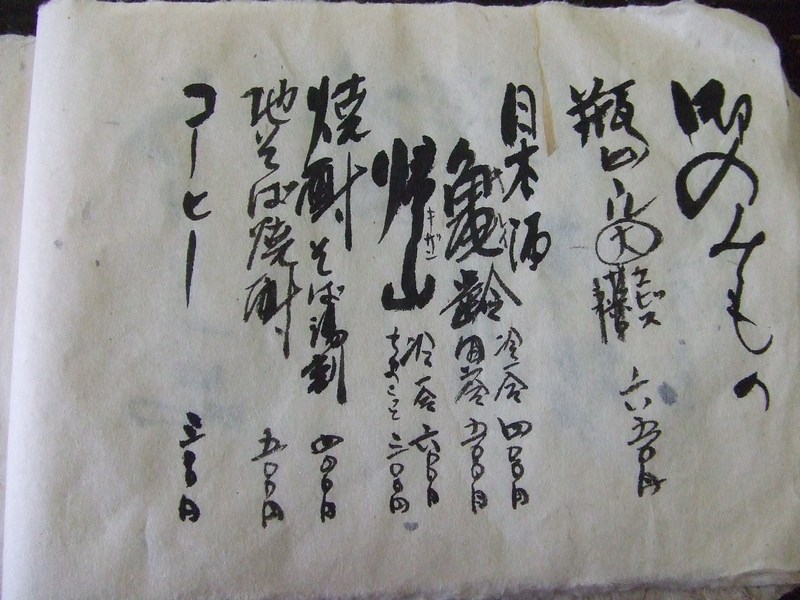 御のみもの
瓶ビール 大 エビス 六五〇円
日本酒
亀齢 冷一合 四〇〇円
五〇〇円
帰山 キザン 冷一合 六〇〇円
ちょこっと 三〇〇円
焼酎 そば湯割 四〇〇円
地そば焼酎 五〇〇円
コーヒー 三〇〇円